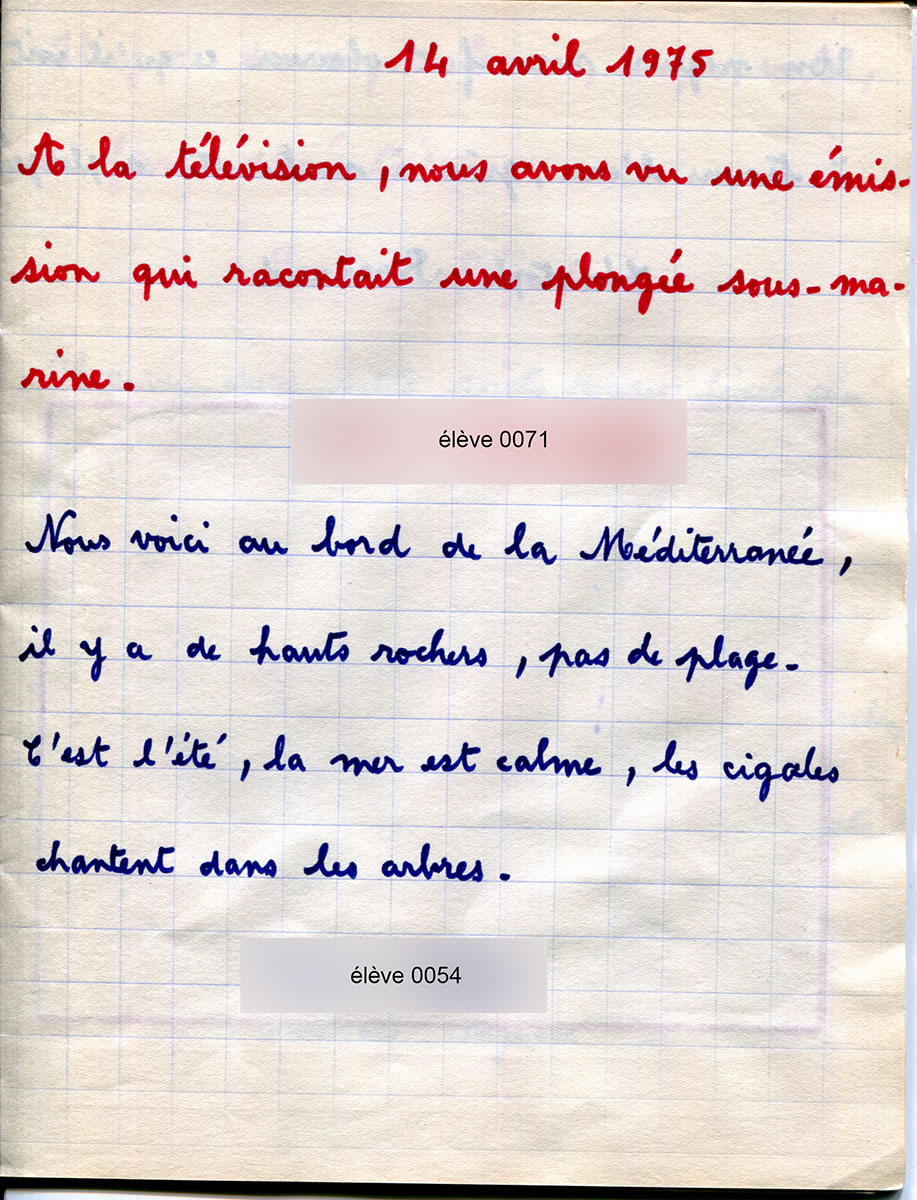 14 avril 1975
A la télévision, nous avons vu une émis-
sion qui racontait une plongée sous-ma-
rine.
élève 0071
Nous voici au bord de la Méditerranée,
il y a de hauts rochers, pas de plage.
C'est l'été, la mer est calme, les cigales
chantent dans les arbres.
élève 0054